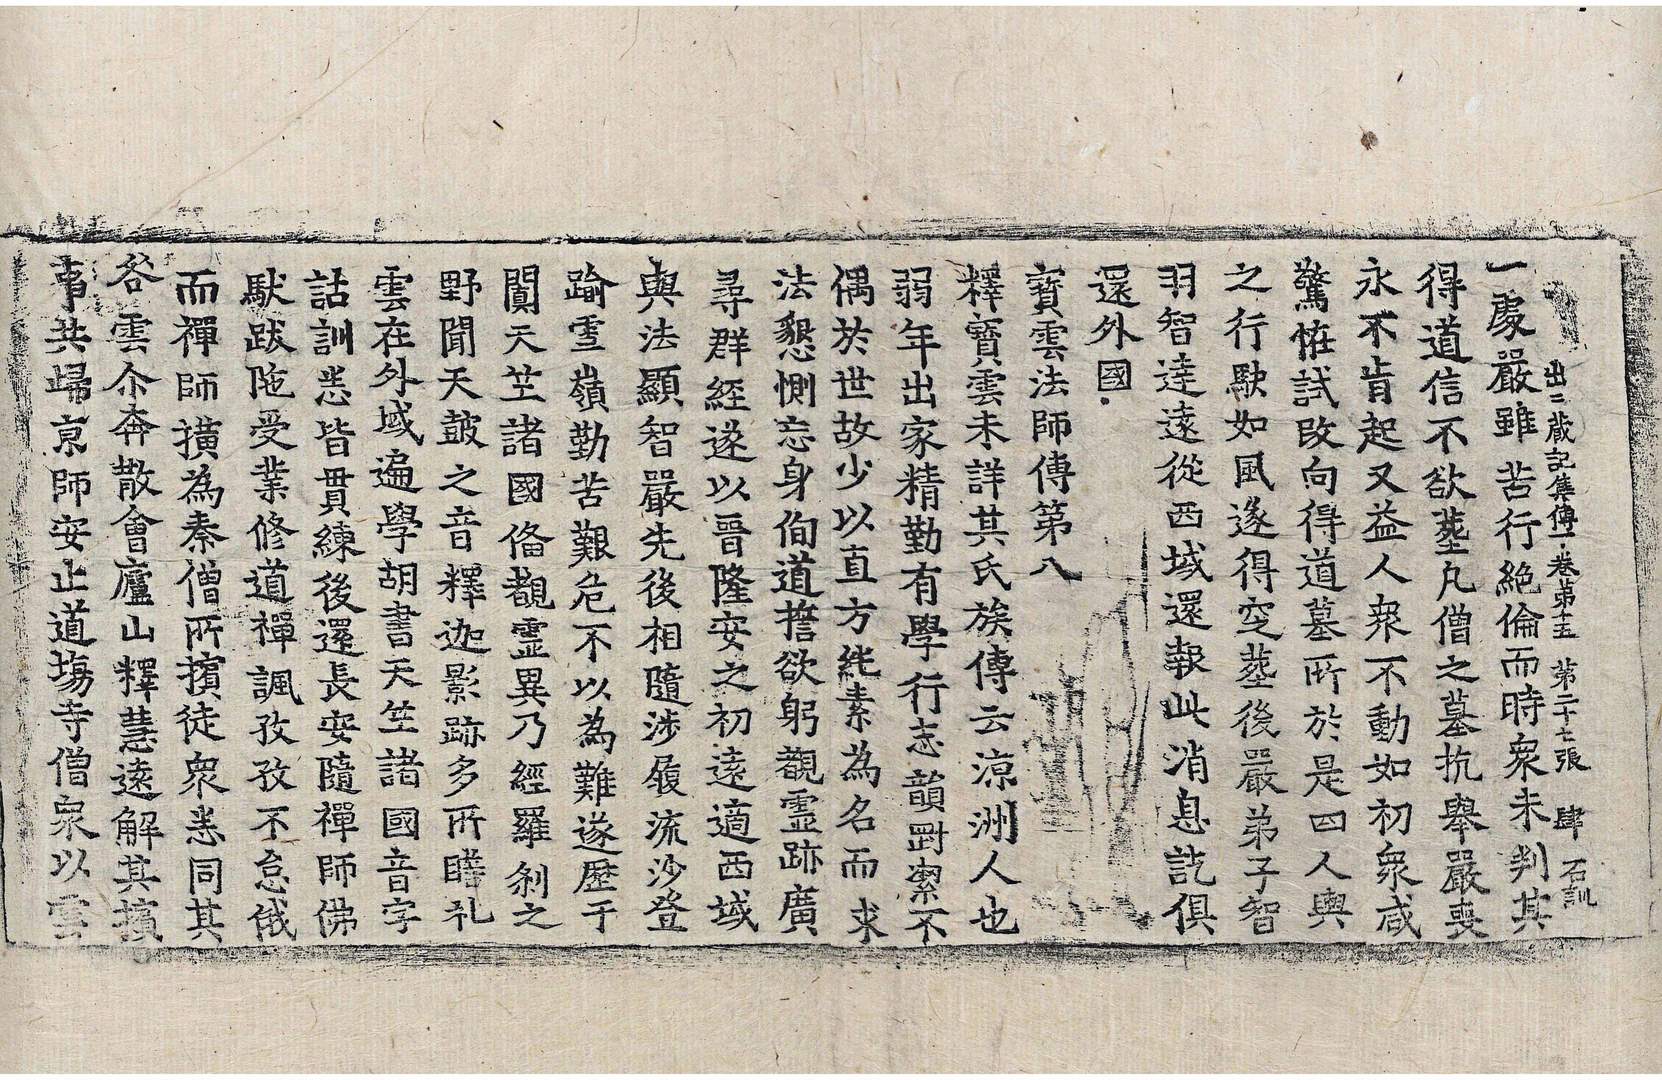 出三藏記集傳卷第十五 第二十七張 肆 石訓
一處嚴雖苦行絶倫而時衆未判其
得道信不欲塟凡僧之墓抗舉嚴喪
永不肯起又益人衆不動如初衆咸
驚恠試改向得道墓所於是四人輿
之行駃如風遂得窆塟後嚴弟子智
羽智達遠從西域還報此消息訖俱
還外國
寶雲法師傳第八
釋寶雲未詳其氏族傳云涼洲人也
弱年出家精勤有學行志韻剛潔不
偶於世故少以直方純素為名而求
法懇惻忘身徇道擔欲躬觀靈跡廣
尋群經遂以晉隆安之初遠適西域
與法顯智嚴先後相隨涉履流沙登
踰雪嶺勤苦艱危不以為難遂歷于
闐天竺諸國俻覩靈異乃經羅刹之
野聞天皷之音釋迦影跡多所瞻礼
雲在外域遍學胡書天竺諸國音字
詁訓悉皆貫練後還長安隨禪師佛
馱跋陁受業修道禪諷孜孜不怠俄
而禪師撗為秦僧所擯徒衆悉同其
咎雲亦奔散會廬山釋慧遠解其擯
事共歸京師安止道場寺僧衆以雲